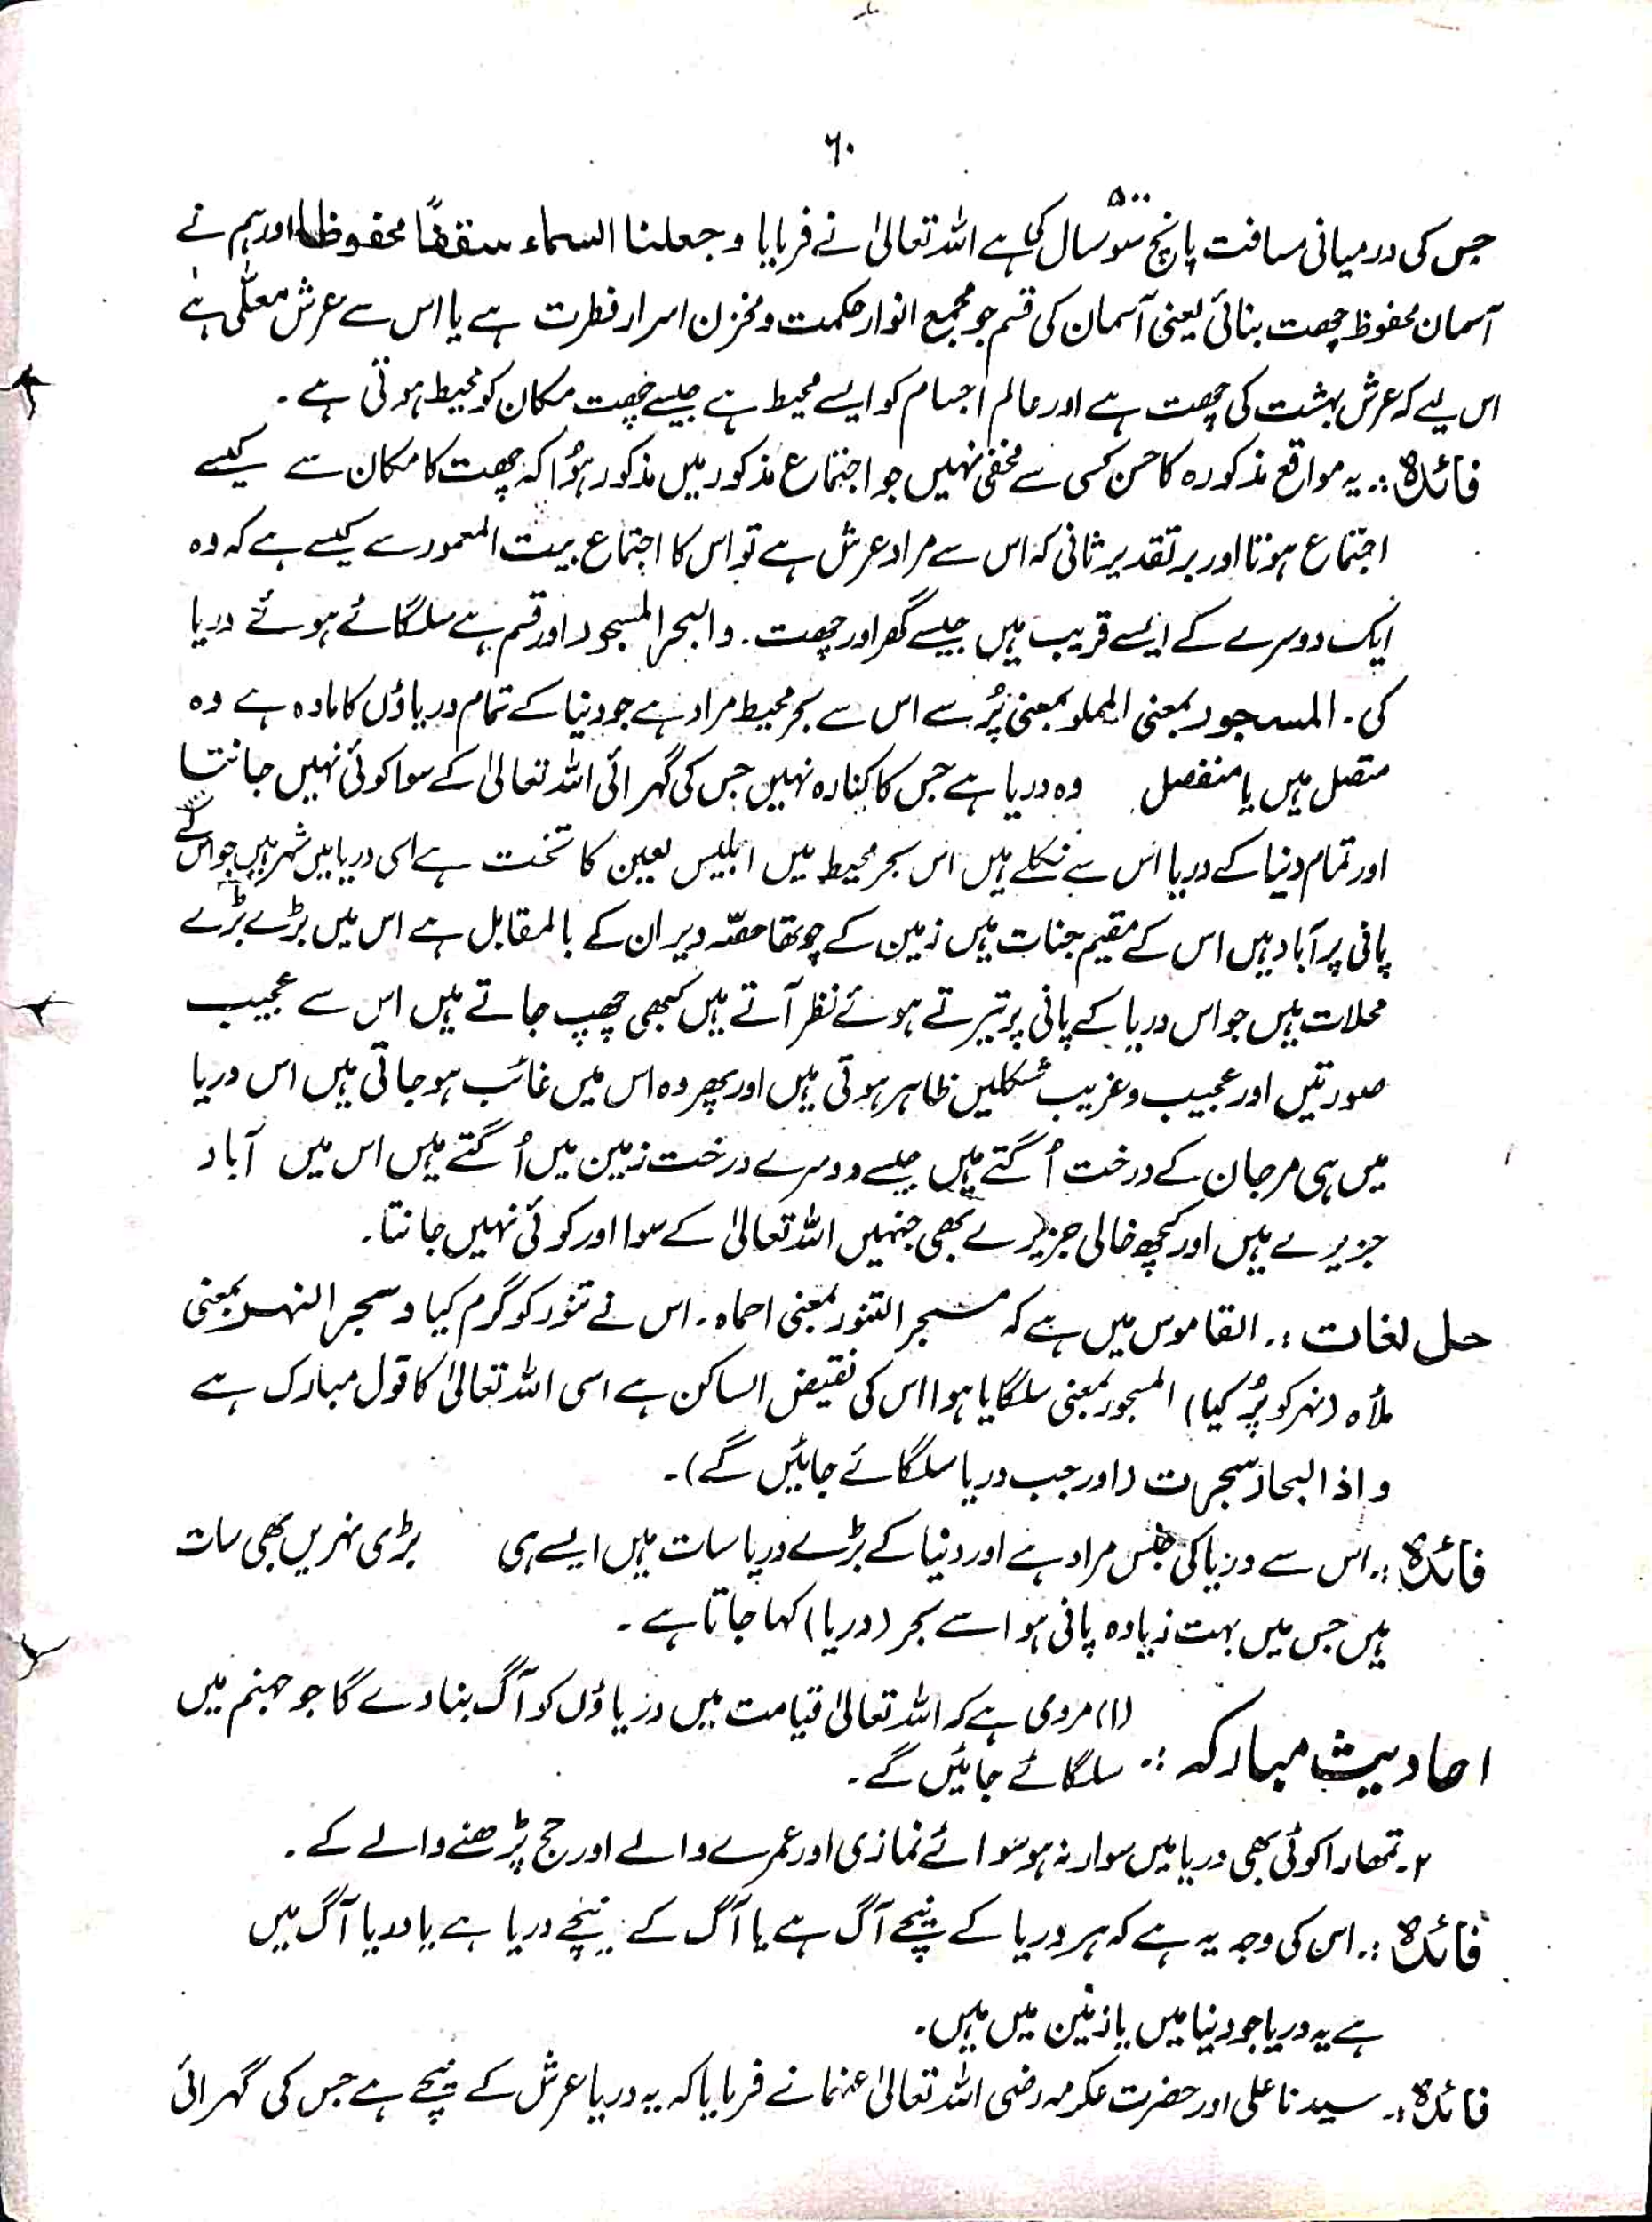 ۶۰
جس کی درمیانی مسافت پانچ سو ۵۰۰ سال کی ہے اللہ تعالیٰ نے فرمایا وجعلنا السماء سقفًا محفوظا اور ہم نے
آسمان محفوظ چھت بنائی یعنی آسمان کی قسم جو مجمع انوار حکمت و مخزن اسرار فطرت ہے یا اس سے عرش معلّٰی ہے
اس لیے کہ عرش بہشت کی چھت ہے اور عالم اجسام کو ایسے محیط ہے جیسے چھت مکان کو محیط ہوتی ہے ۔
فائدہ :۔ یہ مواقع مذکورہ کا حسن کسی سے مخفی نہیں جو اجتماع مذکور میں مذکور ہوُا کہ چھت کا مکان سے کیسے
اجتماع ہوتا اور بر تقدیر ثانی کہ اس سے مراد عرش ہے تو اس کا اجتماع بیت المعمور سے کیسے ہے کہ وہ
ایک دوسرے کے ایسے قریب ہیں جیسے گھر اور چھت ۔ والبحر المسجور اور قسم ہے سلگائے ہوئے دریا
کی ۔ المسجور بمعنی المملو بمعنی پُر سے اس سے بحر محیط مراد ہے جو دنیا کے تمام دریاؤں کا مادہ ہے وہ
متصل ہیں یا منفصل وہ دریا ہے جس کا کنارہ نہیں جس کی گہرائی اللہ تعالیٰ کے سوا کوئی نہیں جانتا
اور تمام دنیا کے دریا اس سے نکلے ہیں اس بحر محیط میں ابلیس لعین کا تخت ہے اسی دریا میں شہر ہیں جو اس کے
پانی پر آباد ہیں اس کے مقیم جنات ہیں زمین کے چوتھا حصّہ دیران کے بالمقابل ہے اس میں بڑے بڑے
محلات ہیں جو اس دریا کے پانی پر تیرتے ہوئے نظر آتے ہیں کبھی چھپ جاتے ہیں اس سے عجیب
صورتیں اور عجیب و غریب شکلیں ظاہر ہوتی ہیں اور پھر وہ اس میں غائب ہو جاتی ہیں اس دریا
میں ہی مرجان کے درخت اُگتے ہیں جیسے دوسرے درخت زمین میں اُگتے ہیں اس میں آباد
جزیرے ہیں اور کچھ خالی جزیرے بھی جنہیں اللہ تعالیٰ کے سوا اور کوئی نہیں جانتا ۔
حل لغات :۔ القاموس میں ہے کہ سجر التنور بمعنی احماہ ۔ اس نے تنور کو گرم کیا و سجر النہر بمعنی
ملأہ (نہر کو پُر کیا) المسجور بمعنی سلگایا ہوا اس کی نقیض الساکن ہے اسی اللہ تعالیٰ کا قول مبارک ہے
و اذا البحار سجرت (اور جب دریا سلگائے جائیں گے) ۔
فائدہ :۔ اس سے دریا کی جنس مراد ہے اور دنیا کے بڑے دریا سات ہیں ایسے ہی بڑی نہریں بھی سات
ہیں جس میں بہت زیادہ پانی ہو اسے بحر (دریا) کہا جاتا ہے ۔
احادیث مبارکہ :۔ (۱) مروی ہے کہ اللہ تعالیٰ قیامت میں دریاؤں کو آگ بنا دے گا جو جہنم میں
سلگائے جائیں گے ۔
۲۔ تمھارا کوئی بھی دریا میں سوار نہ ہو سوائے نمازی اور عمرے والے اور حج پڑھنے والے کے ۔
فائدہ :۔ اس کی وجہ یہ ہے کہ ہر دریا کے نیچے آگ ہے یا آگ کے نیچے دریا ہے یا دریا آگ میں
ہے یہ دریا جو دنیا میں یا زمین میں ہیں ۔
فائدہ :۔ سیدنا علی اور حضرت عکرمہ رضی اللہ تعالیٰ عنہما نے فرمایا کہ یہ دریا عرش کے نیچے ہے جس کی گہرائی